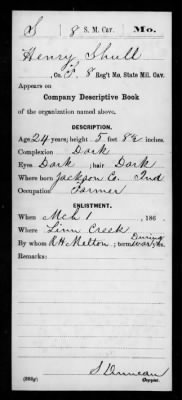 S 8 S. M. Cav. Mo.
Henry Shull
, Co. F, 8 Reg't Mo. State Mil. Cav.
Appears on
Company Descriptive Book
of the organization named above.
DESCRIPTION.
Age 24 years; height 5 feet 8½ inches.
Complexion Dark
Eyes Dark ; hair Dark
Where born Jackson Co. Ind
Occupation Farmer
ENLISTMENT.
When Mch 1 , 186 .
Where Linn Creek
By whom R H Melton ; term During war yrs.
Remarks:
S Duncan
Copyist.